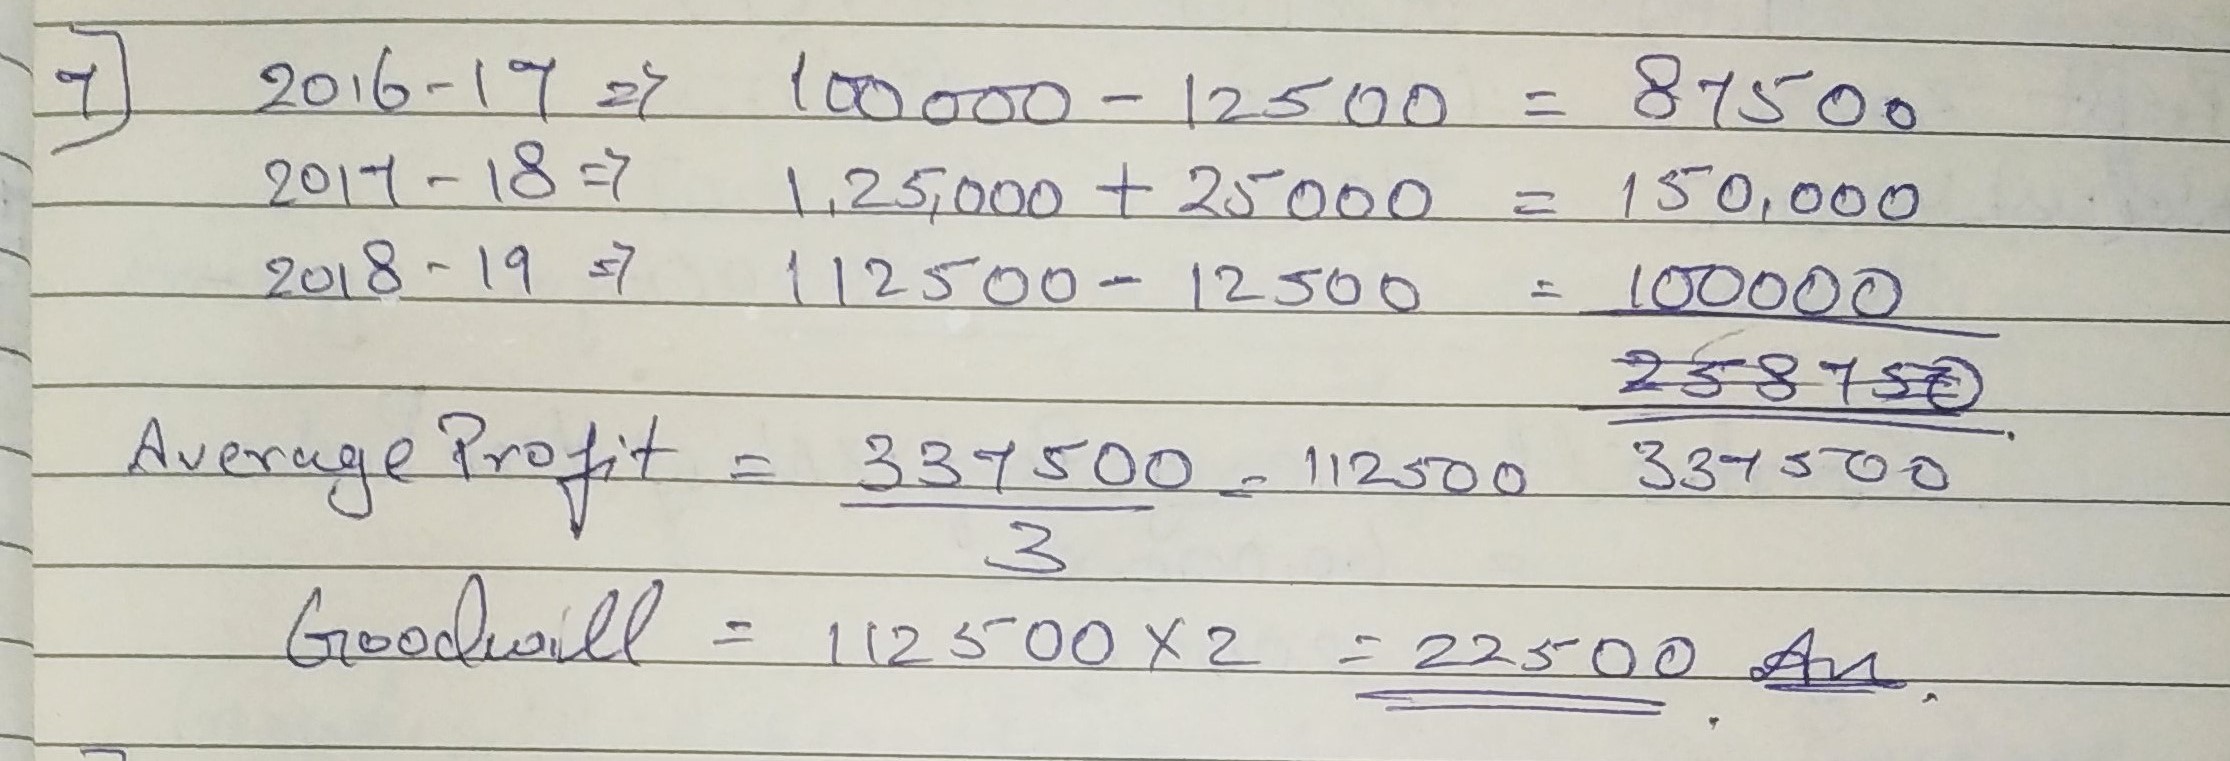 7] 2016-17 => 100000 - 12500 = 87500
2017-18 => 1,25,000 + 25000 = 150,000
2018-19 => 112500 - 12500 = 100000
258750
Average Profit = 337500 = 112500 337500
3
Goodwill = 112500 X 2 = 22500 An.